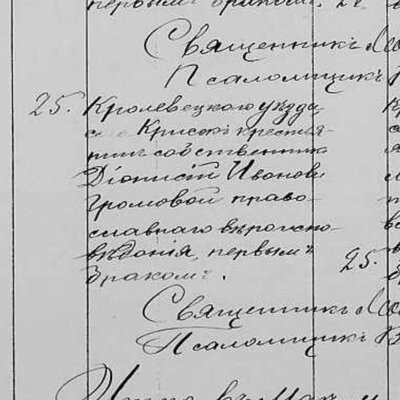 первымъ бракомъ. 24
Священникъ
Псаломщикъ
25. Кролевецкого уѣзда,
с. Крисокъ крестья-
нинъ собственникъ
Діонисій Ивановъ
Громовой право-
славнаго вѣроиспо-
вѣданія, первымъ 25.
бракомъ.
Священникъ
Псаломщикъ